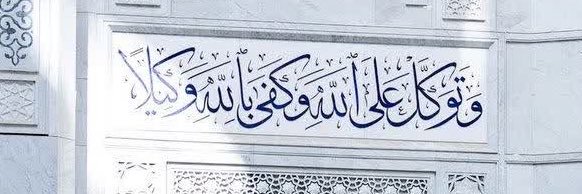 وَتَوَكَّلْ عَلَى ٱللَّهِ وَكَفَىٰ بِٱللَّهِ وَكِيلًا